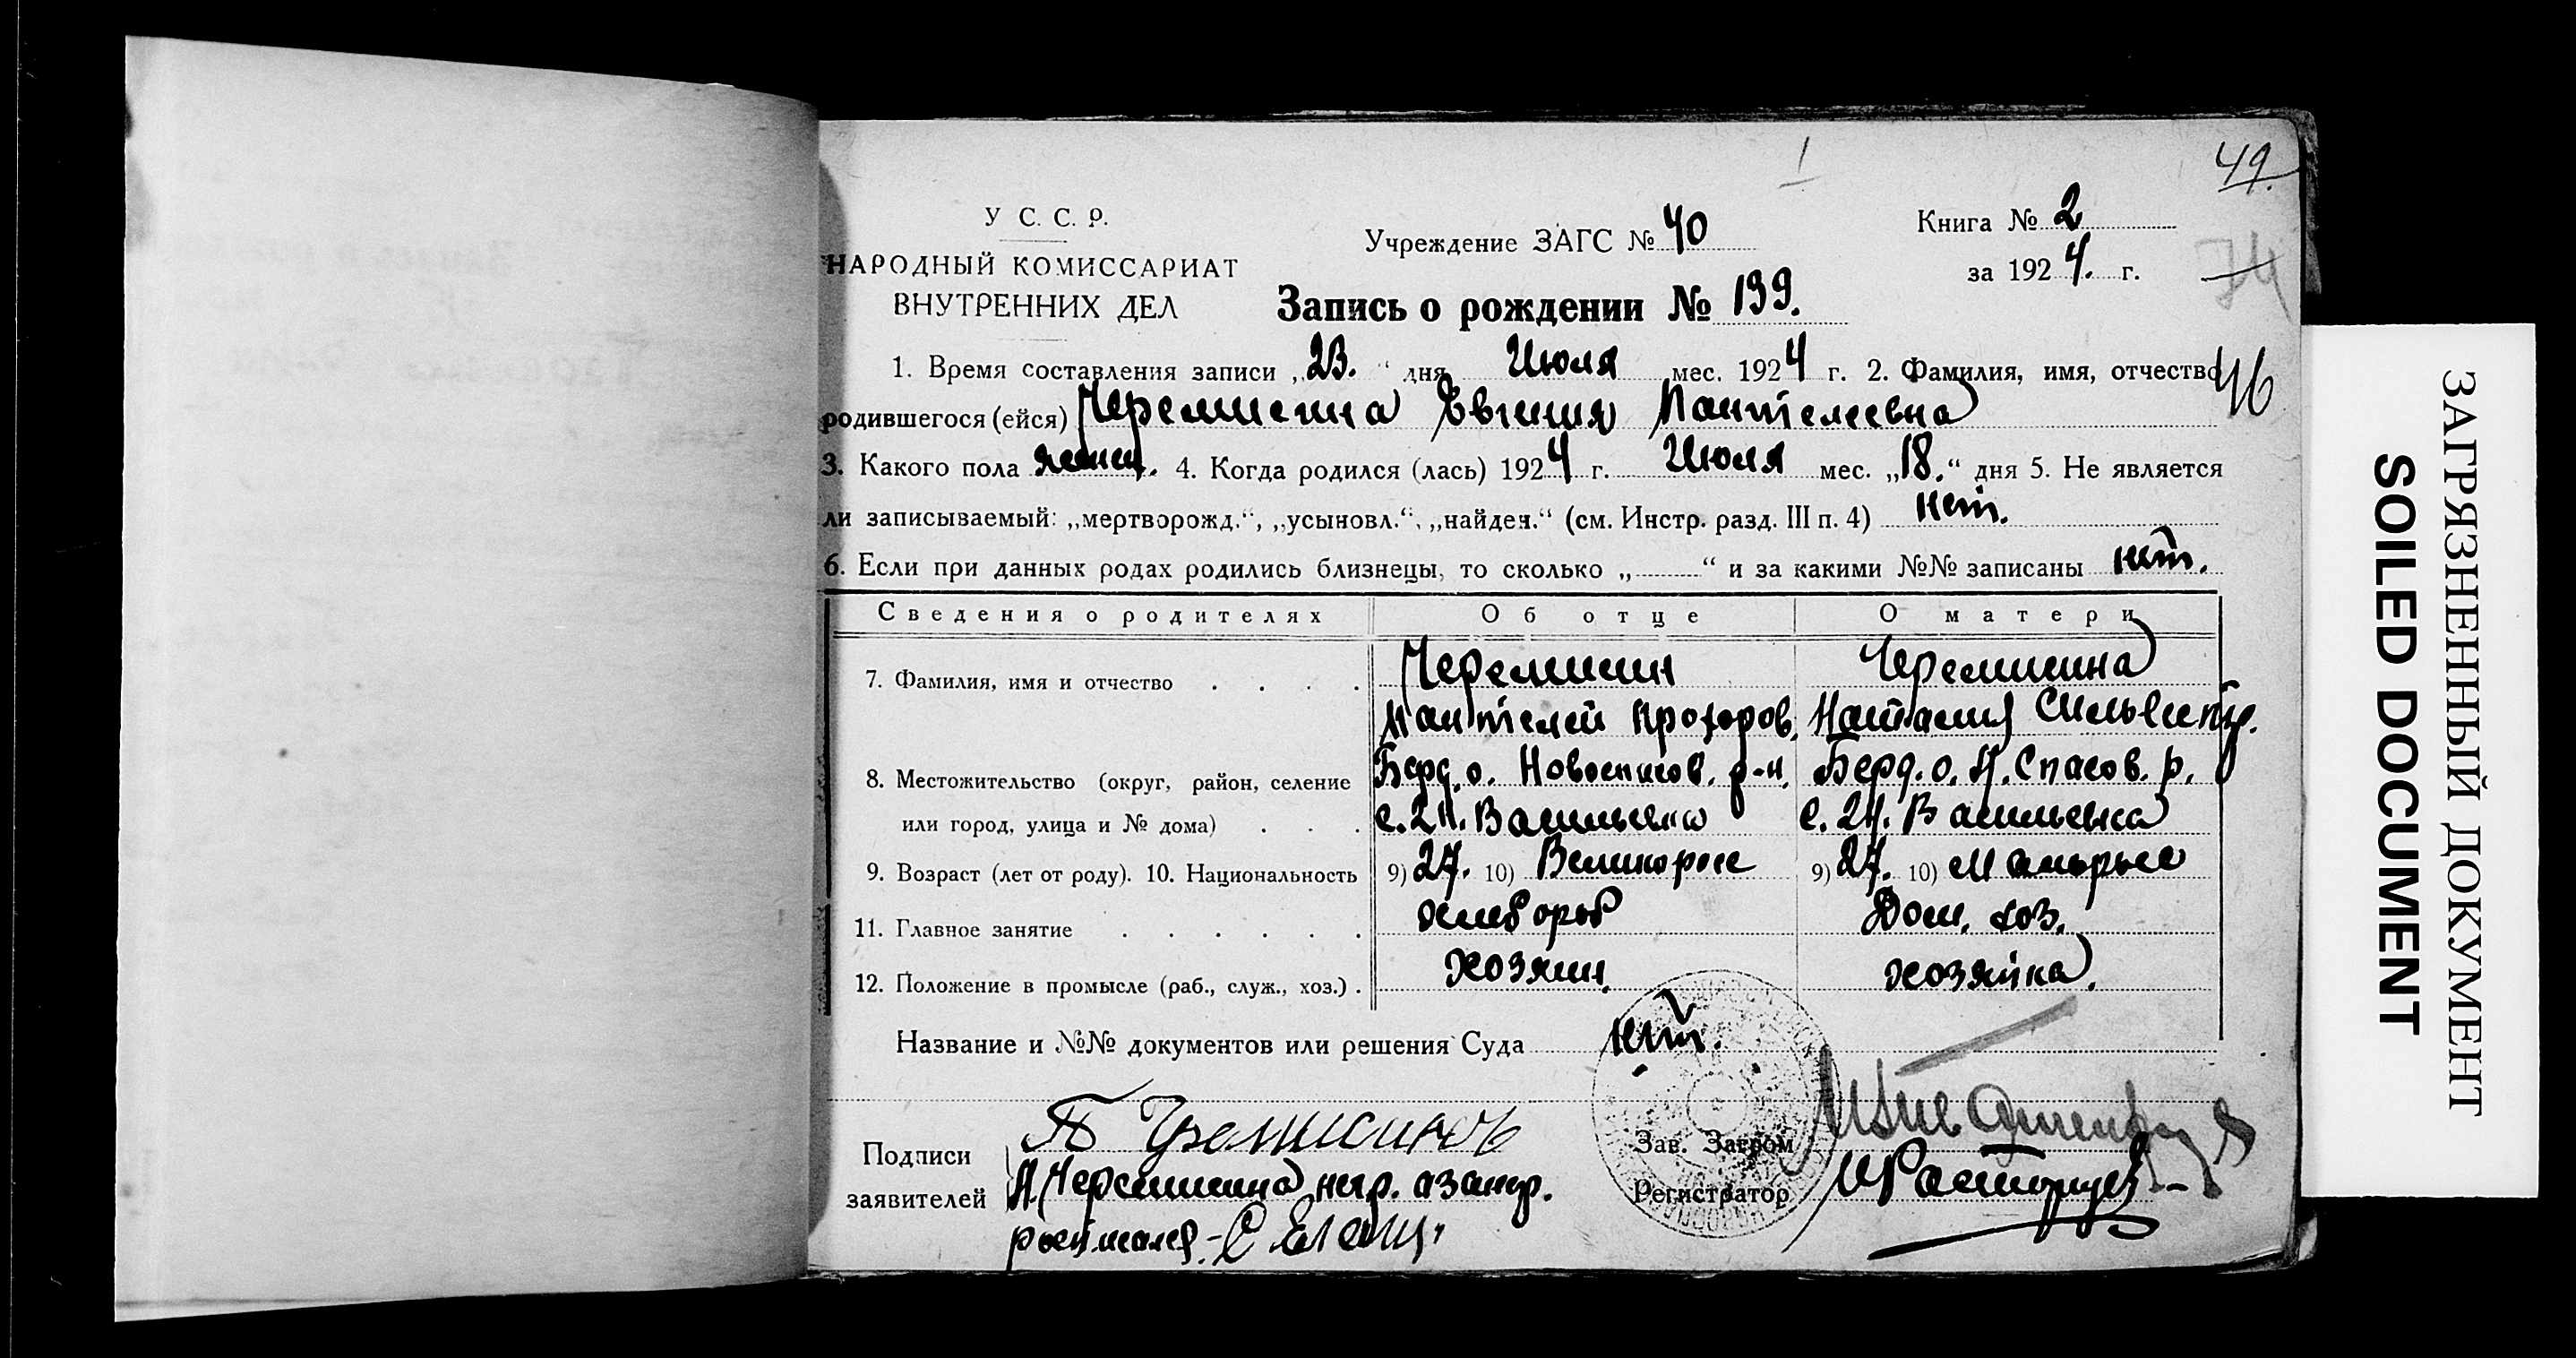 49.
У С. С. Р.
НАРОДНЫЙ КОМИССАРИАТ
ВНУТРЕННИХ ДЕЛ
Учреждение ЗАГС № 40
Книга № 2
за 1924. г.
74
Запись о рождении № 139.
1. Время составления записи „23.“ дня Июля мес. 1924 г. 2. Фамилия, имя, отчество
46
родившегося (ейся) Черемисина Евгения Пантелеевна
3. Какого пола женск. 4. Когда родился (лась) 1924 г. Июля мес. „18.“ дня 5. Не является
ли записываемый: „мертворожд.“, „усыновл.“, „найден.“ (см. Инстр. разд. III п. 4) нет.
6. Если при данных родах родились близнецы, то сколько „ “ и за какими №№ записаны нет.
Сведения о родителях Об отце О матери
7. Фамилия, имя и отчество Черемисин Черемисина
Пантелей Прохоров. Наталия
8. Местожительство (округ, район, селение Берд. о. Новоспасов. р-н. Берд. о. Н. Спасов. р.
или город, улица и № дома) с. 2 Н. Васильевка с. 2 Н. Васильевка
9. Возраст (лет от роду). 10. Национальность 9) 27. 10) Великоросс 9) 27. 10) Малоросс
11. Главное занятие хлебороб Дом. хоз.
12. Положение в промысле (раб., служ., хоз.) хозяин. хозяйка.
Название и №№ документов или решения Суда нет.
Подписи
заявителей
П Черемисинов
Н. Черемисина негр. а за нер.
росписался.
Зав. Загсом
Регистратор
ЗАГРЯЗНЕННЫЙ ДОКУМЕНТ
SOILED DOCUMENT